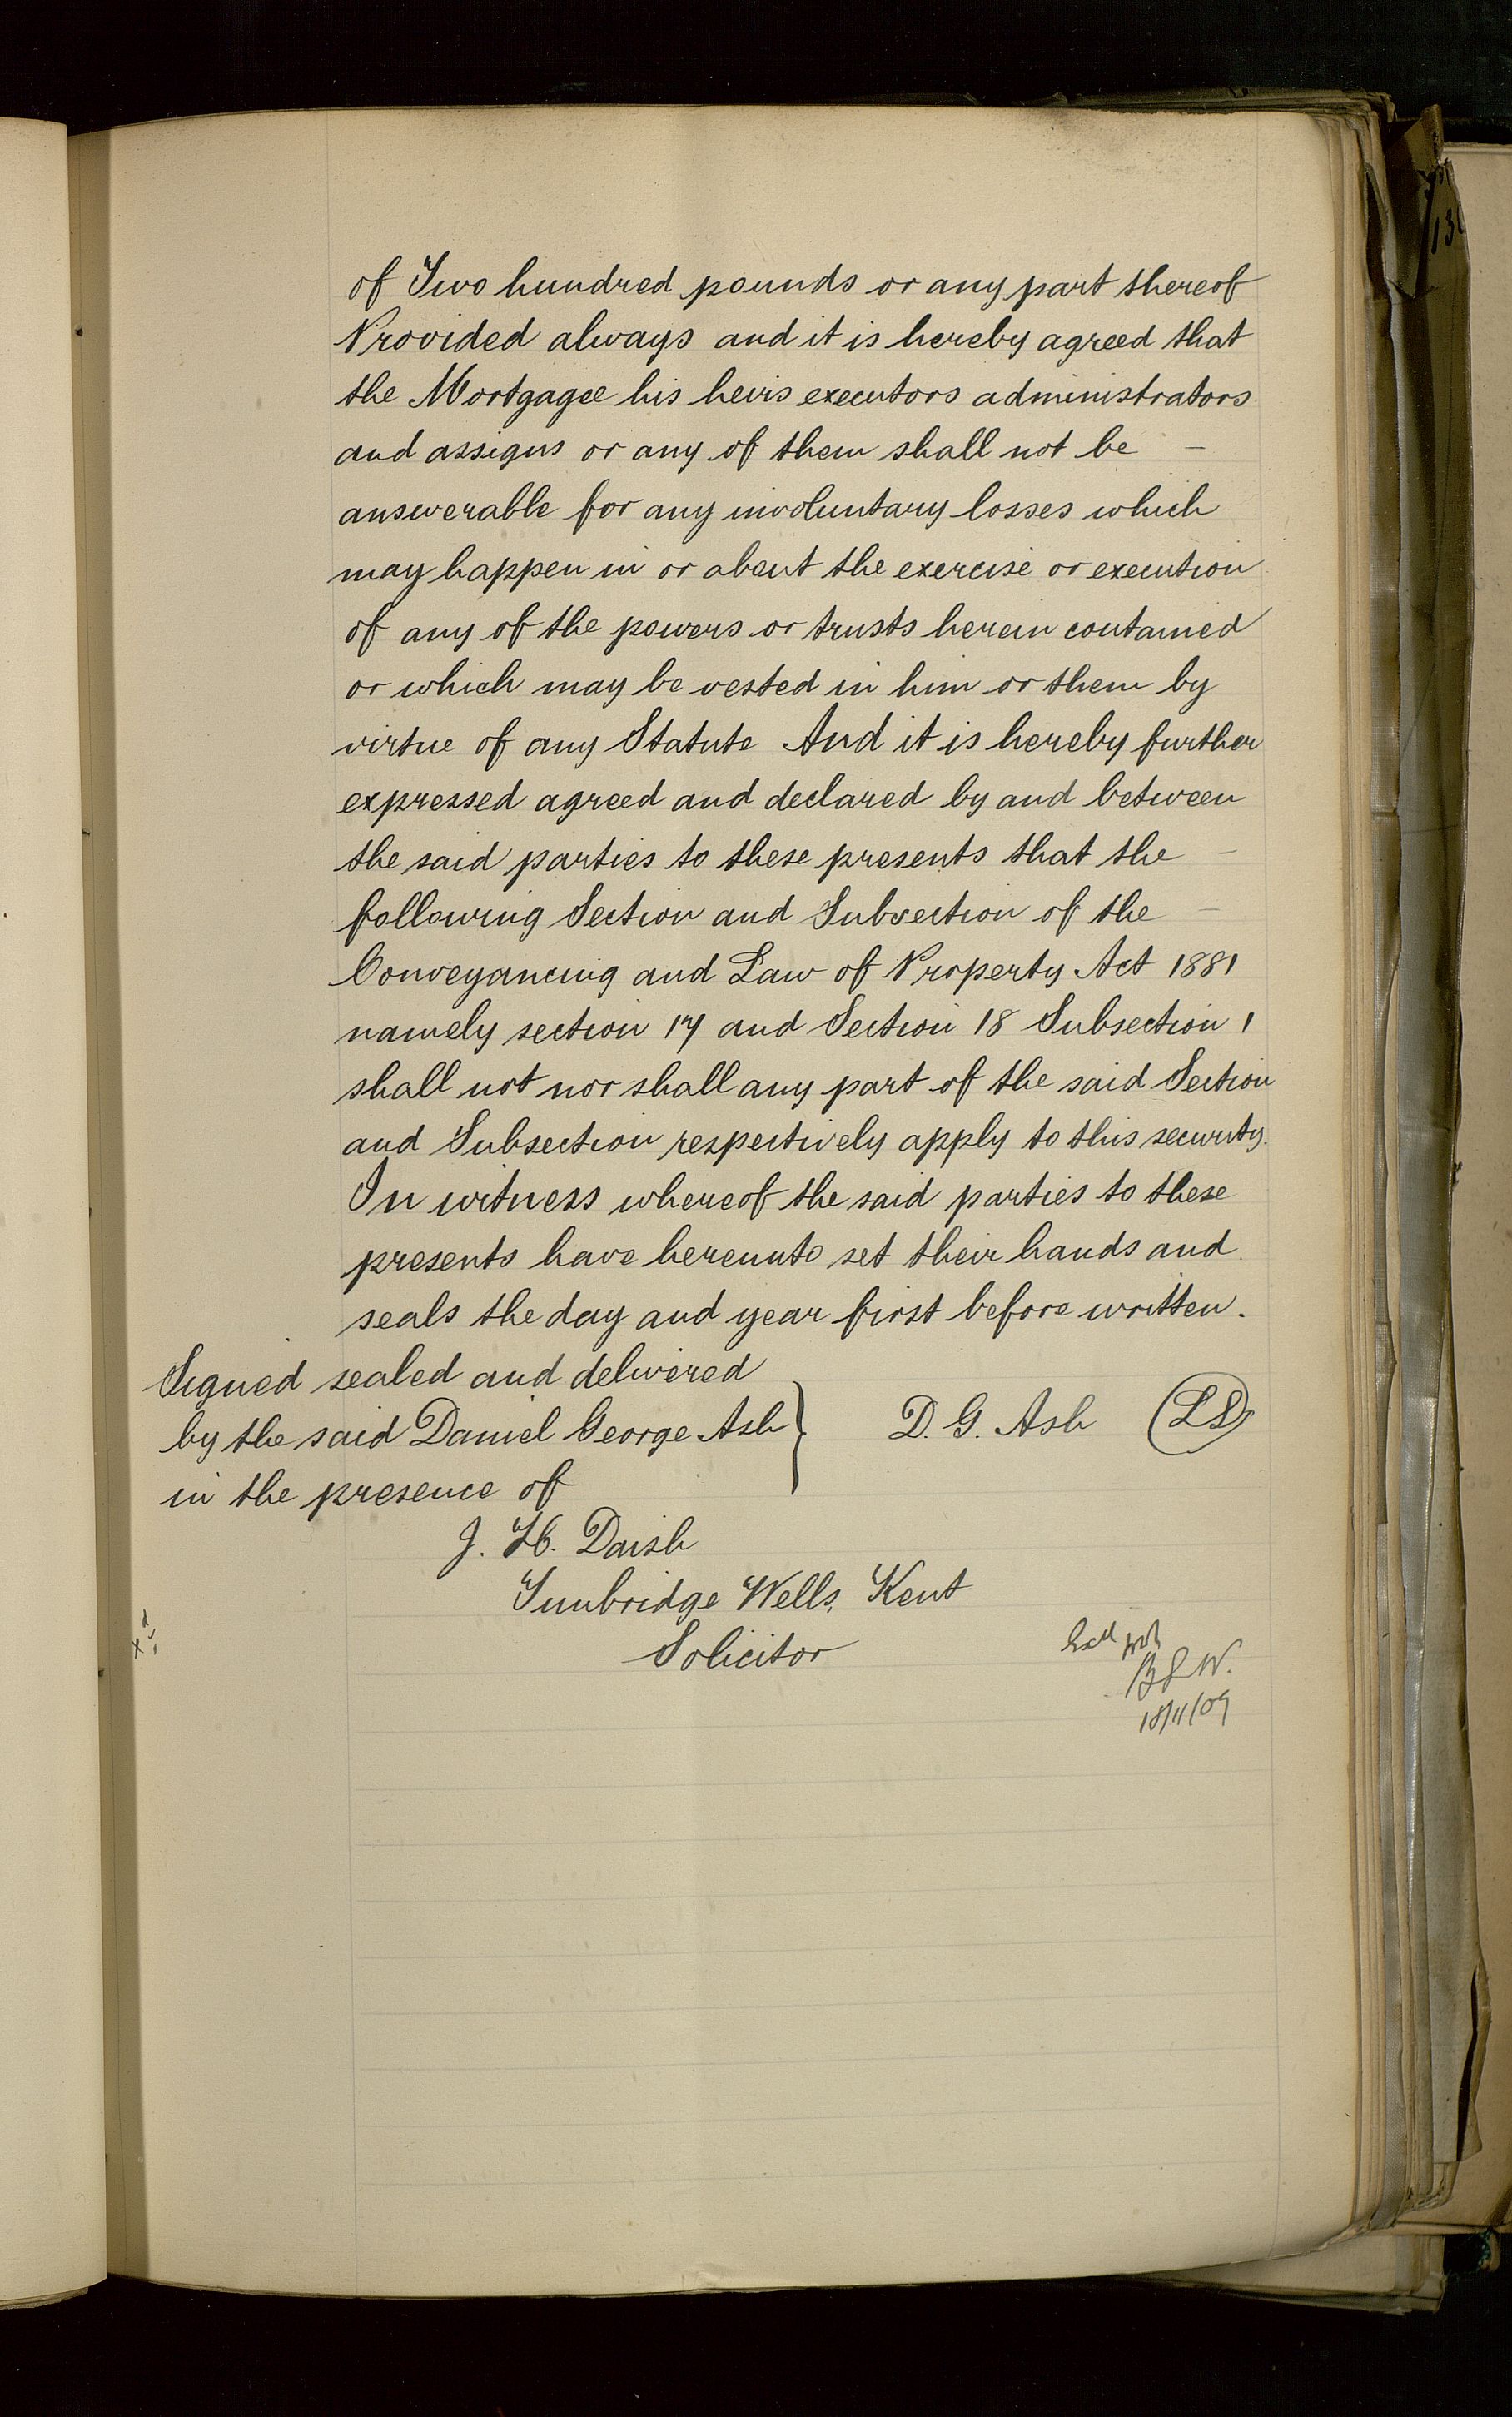 of Two hundred pounds or any part thereof
Provided always and it is hereby agreed that
the Mortgagee his heirs executors administrators
and assigns or any of them shall not be –
answerable for any involuntary losses which
may happen in or about the exercise or execution
of any of the powers or trusts herein contained
or which may be vested in him or them by
virtue of any Statute And it is hereby further
expressed agreed and declared by and between
the said parties to these presents that the –
following Section and Subsection of the –
Conveyancing and Law of Property Act 1881
namely section 17 and Section 18 Subsection 1
shall not nor shall any part of the said Section
and Subsection respectively apply to this security.
In witness whereof the said parties to these
presents have hereunto set their hands and
seals the day and year first before written.
Signed sealed and delivered
by the said Daniel George Ash } D. G. Ash (LS)
in the presence of
J. H. Daish
Tunbridge Wells, Kent
Solicitor
Exd
18/11/09